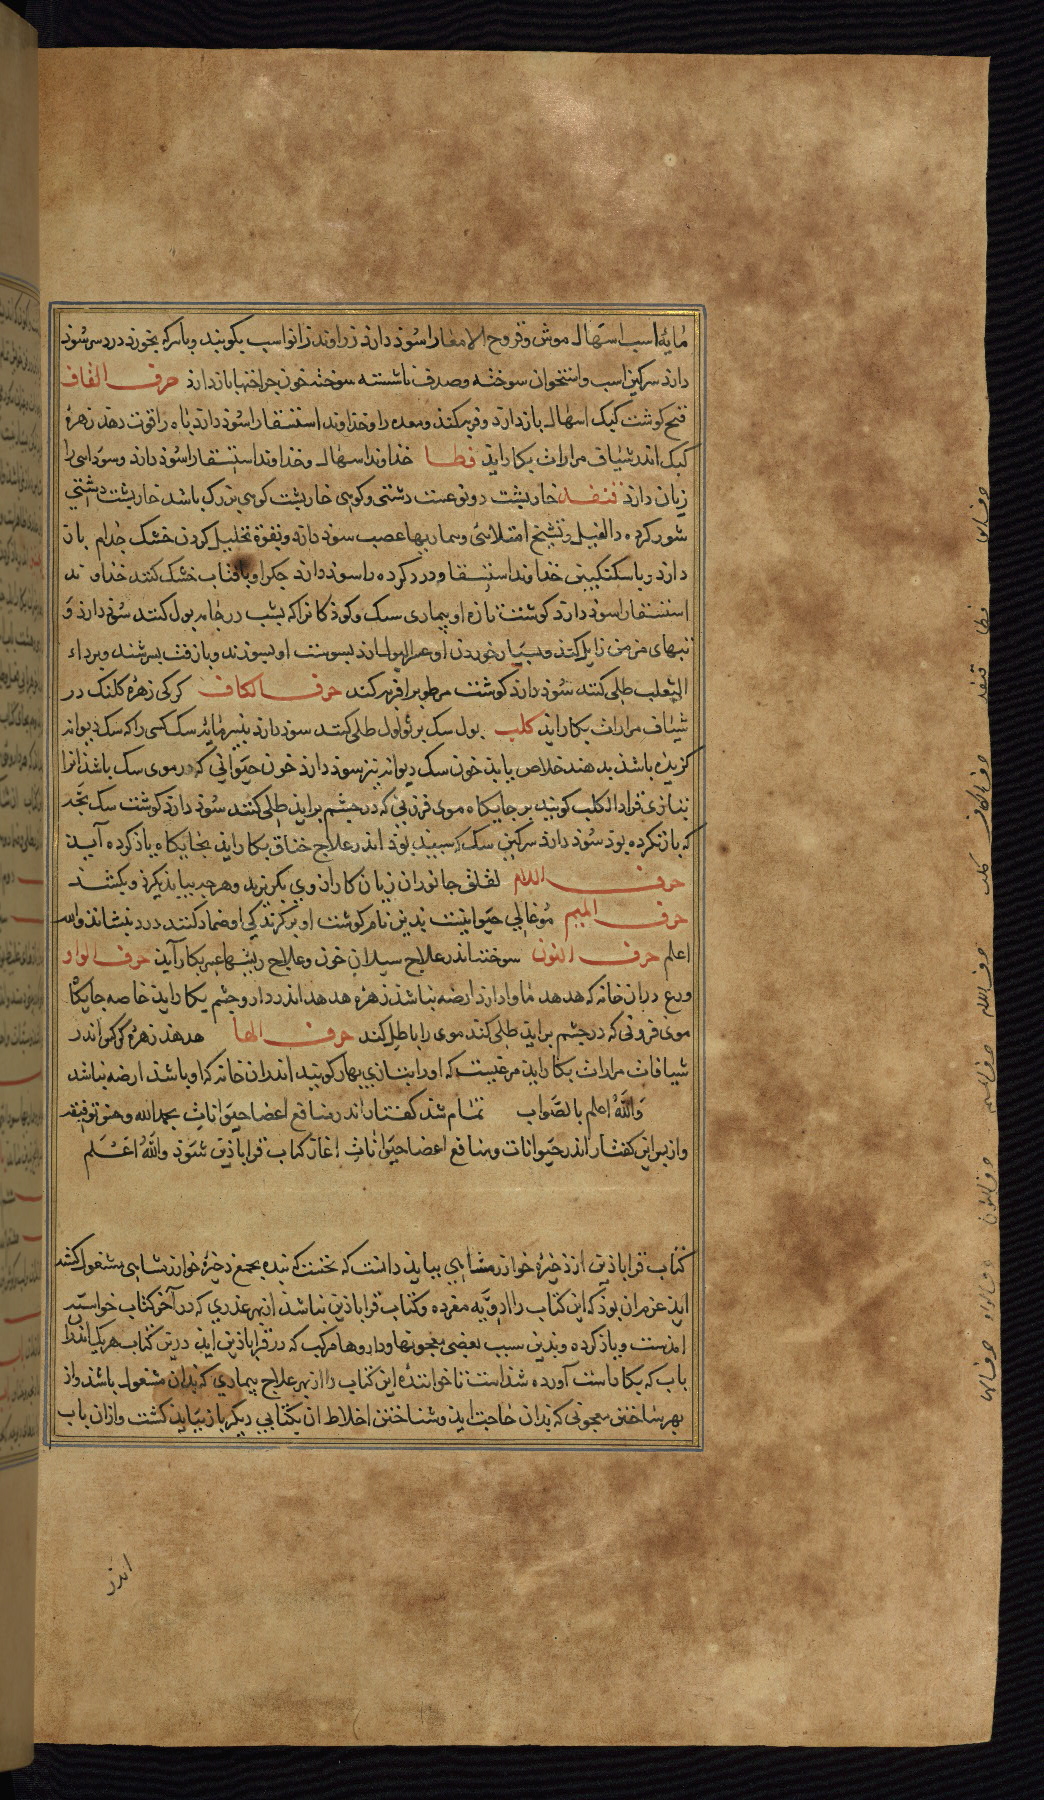 مایهٔ اسب اسهال موش و قروح الامعا را سوذ دارذ زراوند زانو اسب بکوبند و با سرکه بخورند درد سر سوذ
دارذ سرکین اسب و استخوان سوخته و صدف ناشسته سوخته خون جراحتها باز دارذ حرف القاف
قبج کوشت کبک اسهال باز دارذ و فربه کند و معده را و خداوند استسقا را سوذ دارذ باه را قوت دهد زهرهٔ
کبک اندر شیاف مرارات بکار آید قطا خذاوند اسهال و خذاوند استسقا را سوذ دارذ و سوداسی را
زیان دارذ قنفد خارپشت دو نوعست دشتی و کوهی خارپشت کوهی بزرک باشد خارپشت دشتی
شور کرده دالفیل و تشنج امتلاسی و بیماریها عصب سوذ دارذ و بقوة تحلیل کردن خشک جذام باز
دارذ و با سکنکبین خذاوند استسقا و درد کرده را سوذ دارذ جکر او بافتاب خشک کنند خذاوند
استسقا را سوذ دارذ کوشت تازه او بیماری سک و کوذکانرا که بشب در جامه بول کنند سوذ دارذ و
تبهای مزمن زایل کند و بسیار خوردن او عسر البول ارد پوست او بسوزند و با زفت بسرشند و بر داء
الثعلب طلی کنند سوذ دارذ کوشت مرطوبرا فربه کند حرف الکاف کرکی زهرهٔ کلنک در
شیاف مرارات بکار آید کلب بول سک بر ثولول طلی کنند سوذ دارذ پنیر مایه سک کسی را که سک دیوانه
کزیده باشذ بدهند خلاص یابذ خون سک دیوانه نیز سوذ دارذ خون حیوانی که در موی سک باشذ انرا
بتازی قراد الکلب کویند بر جایکاه موی فزونی که در چشم برآید طلی کنند سوذ دارذ کوشت سک بچه
که باز نکرده بوذ سوذ دارذ سرکین سک که سبید بوذ اندر علاج خناق بکار آید بجایکاه یاذ کرده آیذ
حرف اللام لقلق جانوران زیان کار از وی بکریزند و هرچه بیابذ بکیرذ و بکشد
حرف المیم موغالی حیوانیست بدین نام کوشت او بر کزندکی او ضماد کنند درد بنشاند والله
اعلم حرف النون سوختنا اندر علاج سیلان خون و علاج ریشها عبر بکار آید حرف الواو
ورع در ان خانه که هدهد ماوا دارذ ارضه نباشذ زهرهٔ هدهد اندر دارو چشم بکار آید خاصه جایکاه
موی فزونی که در چشم براید طلی کنند موی را باطل کند حرف الها هدهد زهرهٔ کرکی اندر
شیافات مرارات بکار آید مرغیست که او را بتازی بهار کویند اندر ان خانه که او باشذ ارضه نباشد
والله اعلم بالصواب تمام شد کفتار اندر منافع اعضا حیوانات بحمد الله و حسن توفیقه
و از پس این کفتار اندر حیوانات و منافع اعضا حیوانات اغاز کتاب قراباذین شوذ والله اعلم
کتاب قراباذین از ذخیرهٔ خوارزمشاهی ببایذ دانست که نخست که بنده بجمع ذخیرهٔ خوارزمشاهی مشغول کشت
این عزم ان بوذ که این کتاب را ادویه مفرده و کتاب قراباذین نباشذ از بهر عذری که در آخر کتاب خواسته
امذست و یاذ کرده و بدین سبب بعضی معجونها و داروها مرکب که در قراباذین آید درین کتاب هر یک اندر ان
باب که بکار است آورده شذاست تا خوانندهٔ این کتاب را از بهر علاج بیماری که بدان مشغول باشذ و از
بهر شناختن معجونی که بدان حاجت آید و شناختن اخلاط ان بکتابی دیکر باز نبایذ کشت و ازان باب
اندر
حرف القاف
قطا
قنفد
حرف الکاف
کلب
حرف اللام
حرف المیم
حرف النون
حرف الواو
حرف الها